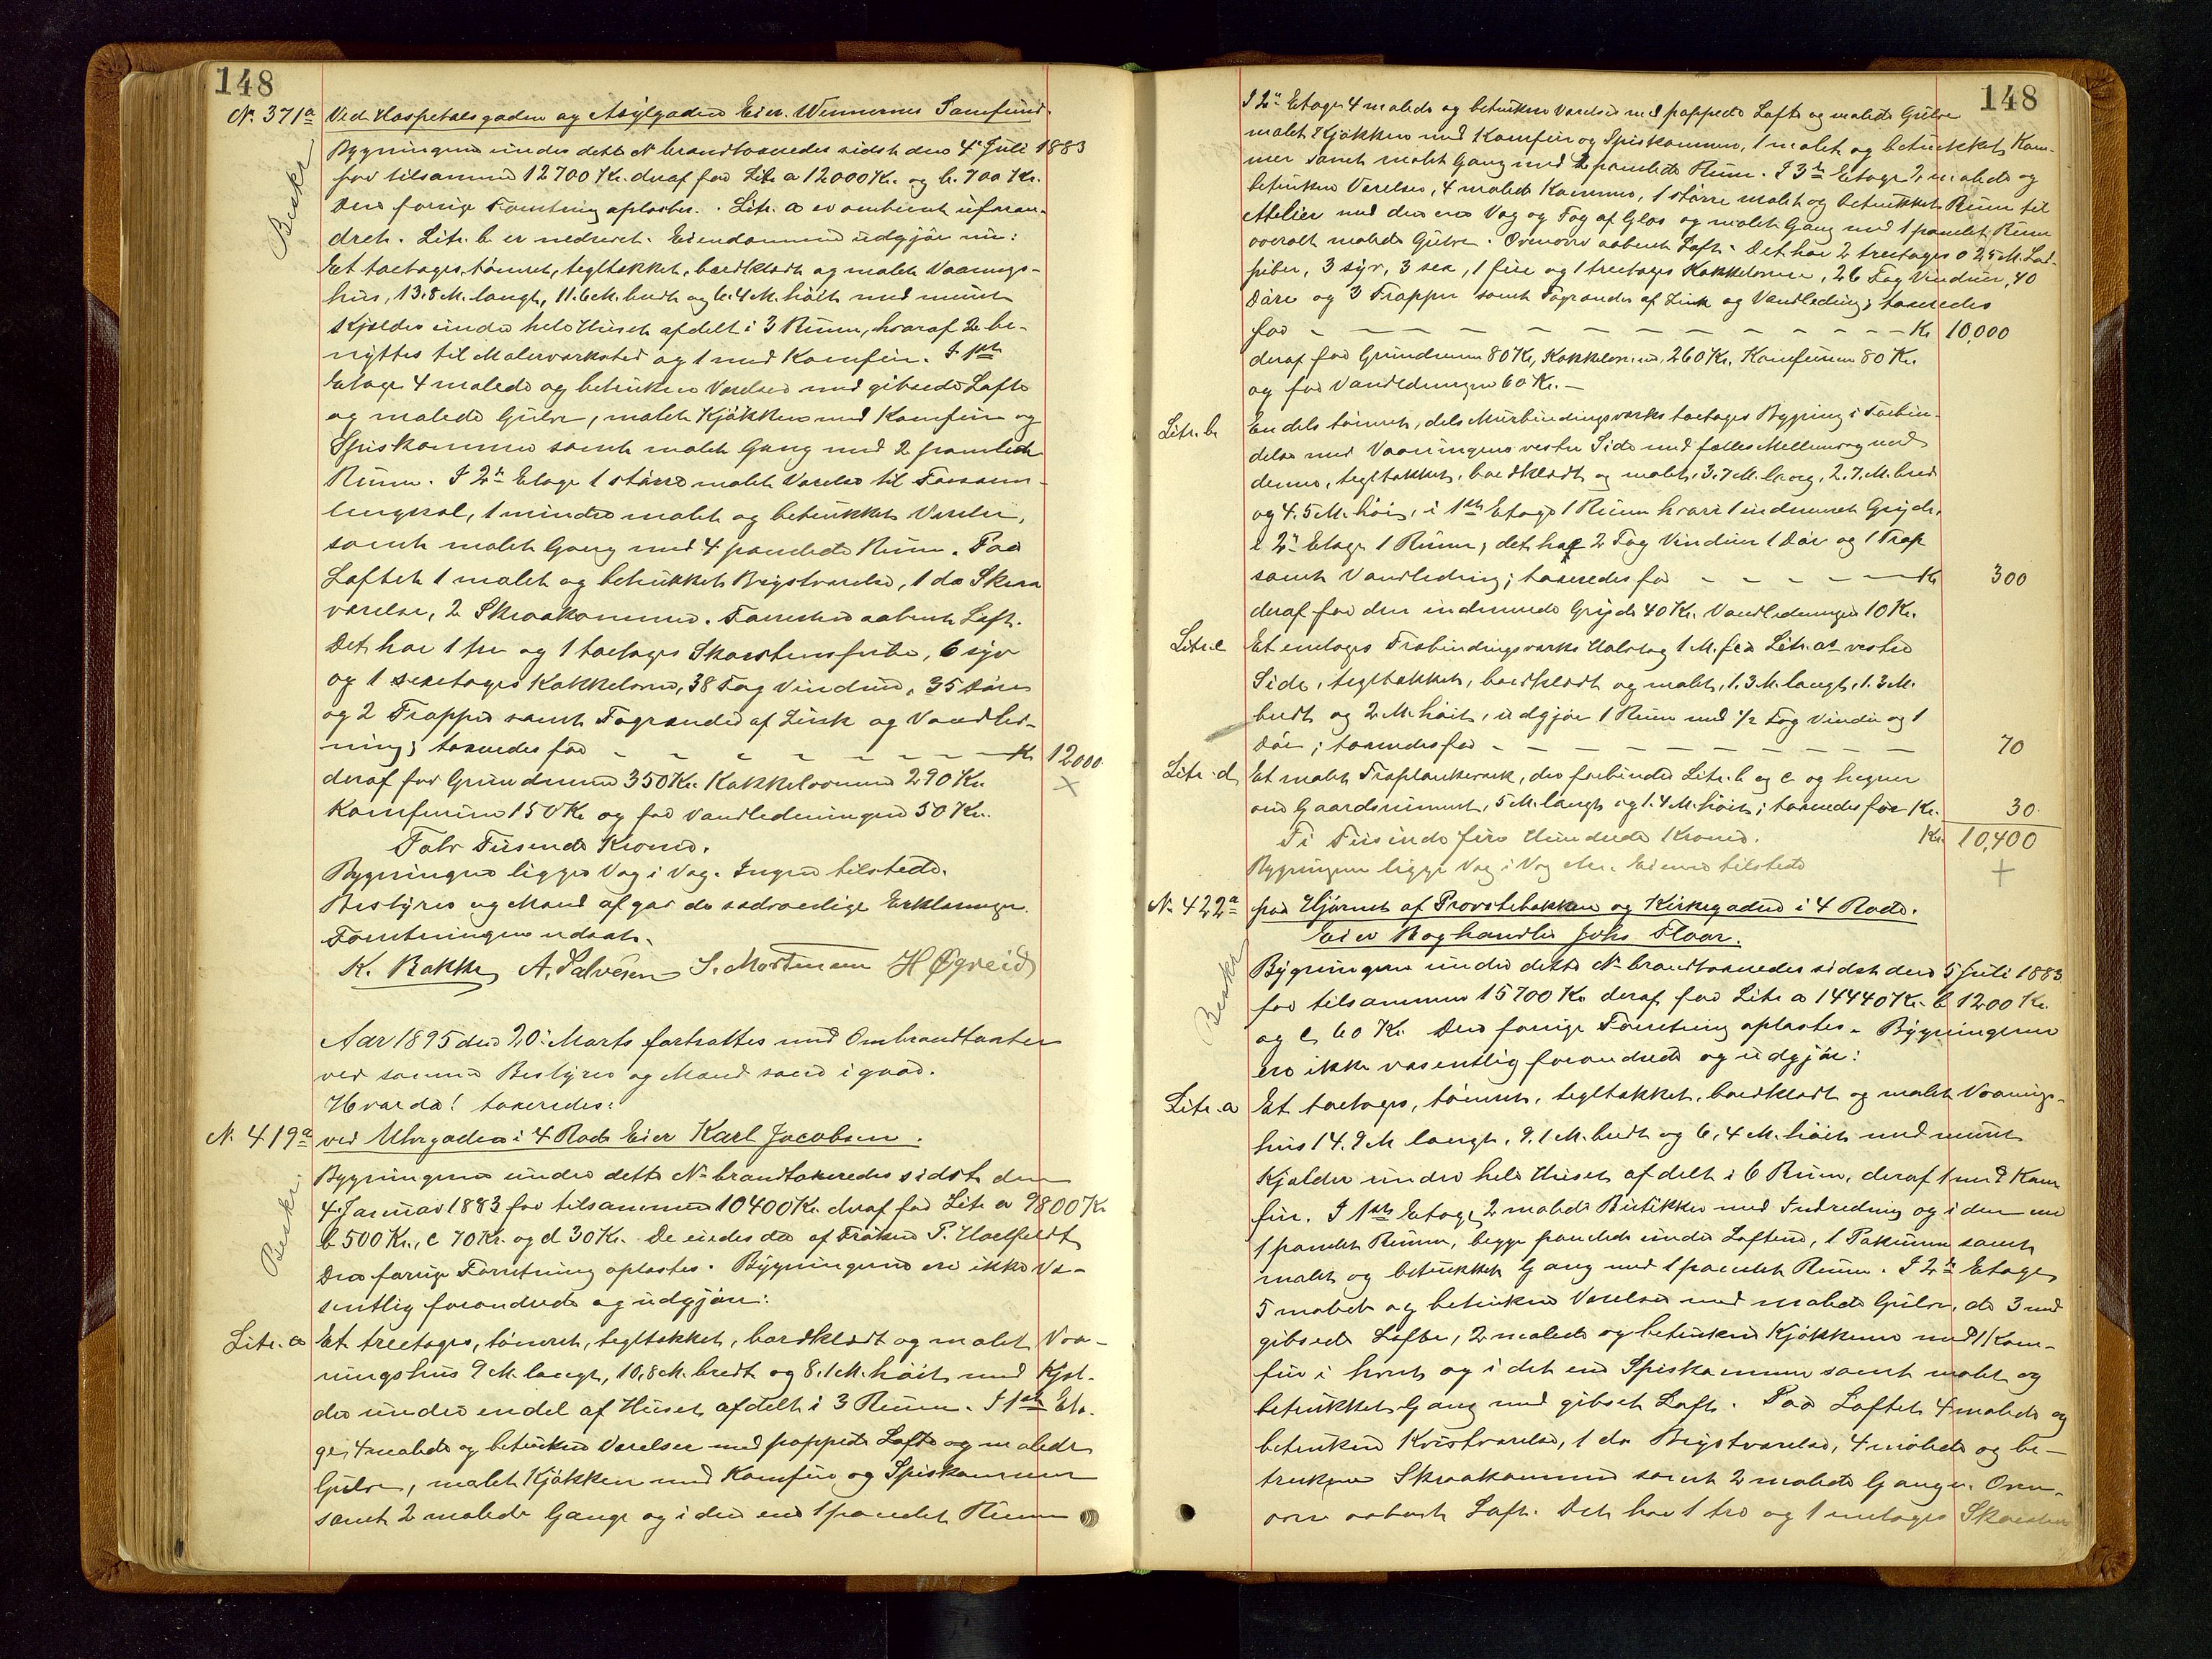 148
N. 371a Ved Hospetalsgaden og Asylgaden Eier. Vennernes Samfund.
Beskr
Bygningerne under dette N. brandtaxeredes sidst den 4de Juli 1883
for tilsammen 12700 Kr. deraf for Litr a 12000 Kr. og b. 700 Kr.
Den forrige Forretning oplæstes. Litr. a er omtrent uforan-
dret. Litr. b er nedrevet. Eiendommen udgjør nu:
Et toetages, tømret, tegltækket, bordklædt og malet Vaanings-
hus, 13.8 M. langt, 11.6 M. bredt og 6.4 M. høit med muret
Kjælder under hele Huset afdelt i 3 Rum, hvoraf 2 be-
nyttes til Malerværksted og 1 med Komfur. I 1ste
Etage 4 malede og betrukne Værelser med gibsede Lofte
og malede Gulve, malet Kjøkken med Komfur og
Spiskammer samt malet Gang med 2 panelede
Rum. I 2den Etage 1 større malet Værelse til Forsam-
lingssal, 1 mindre malet og betrukket Værelse,
samt malet Gang med 4 panelede Rum. Paa
Loftet 1 malet og betrukket Brystværelse, 1 do Skraa
værelse, 2 Skraakammere. Forresten aabent Loft.
Det har 1 fri og 1 toetages Skorstenspibe, 6 syv
og 1 sexetages Kakkelovne, 38 Fag Vinduer, 35 Døre
og 2 Trapper samt Tagrender af Zink og Vandled-
ning; taxeredes for - - - - - - - - Kr 12000.
deraf for Grundmuren 350 Kr. Kakkelovnene 290 Kr.
Komfurene 150 Kr og for Vandledningen 50 Kr.
Tolv Tusende Kroner.
Bygningerne ligge Væg i Væg. Ingen tilstede.
Bestyrer og Mænd afgav de sædvanlige Erklæringer.
Forretningen udsat.
K. Bakke A. Salvesen S. Mortensen H Øgreid
Aar 1895 den 20. Marts fortsattes med Ombrandtaxten
ved samme Bestyrer og Mænd som igaar.
Hvorda! taxeredes:
N. 419a ved Uhrgaden i 4 Rode Eier Karl Jacobsen.
Beskr.
Bygningerne under dette N. brandtaxeredes sidst den
4. Januar 1883 for tilsammen 10400 Kr. deraf for Litr a 9800 Kr
b 500 Kr., c 70 Kr. og d 30 Kr. De eiedes da af Frøken P. Hoelfeldt
Den forrige Forretning oplæstes. Bygningerne ere ikke væ-
sentlig forandrede og udgjøre:
Litr. a Et treetages, tømret, tegltækket, bordklædt og malet Vaa-
ningshus 9 M. langt, 10,8 M. bredt og 8,1 M. høit med Kjæl-
der under endel af Huset afdelt i 3 Rum. I 1ste Eta-
ge, 4 malede og betrukne Værelser med pappede Lofte og malede
Gulve, malet Kjøkken med Komfur og Spiskammer
samt 2 malede Gange og i den ene 1 panelet Rum
148
I 2den Etage 4 malede og betrukne Værelser med pappede Lofte og malede Gulve
malet Kjøkken med 1 Komfur og Spiskammer, 1 malet og betrukket Kam-
mer samt malet Gang med 2 panelede Rum. I 3die Etage 2 malede og
betrukne Værelser, 4 malede Kammere, 1 større malet og betrukket Rum til
Attelier med den ene Væg og Tag af Glas og malet Gang med 1 panelet Rum
overalt malede Gulve. Ovenover aabent Loft. Det har 2 treetages 0,25 M. Lød-
piber, 3 syv, 3 sex, 1 fire og 1 treetages Kakkelovne, 26 Fag Vinduer, 40
Døre og 3 Trapper samt Tagrender af Zink og Vandledning; taxeredes
for - - - - - - - - - - - - - Kr 10,000
deraf for Grundmuren 80 Kr, Kakkelovnene 260 Kr. Komfurene 80 Kr.
og for Vandledningen 60 Kr. -
Litr. b En dels tømret, dels Murbindingsværks toetages Bygning i Forbin-
delse med Vaaningens vestre Side med fælles Mellemvæg med
denne, tegltækket, bordklædt og malet, 3.7 M. lang, 2.7. M. bred
og 4.5 M. høi, i 1ste Etage 1 Rum hvori 1 indmuret Gryde,
i 2den Etage 1 Rum; det har 2 Fag Vinduer 1 Dør og 1 Trap
samt Vandledning; taxeredes for - - - - - Kr 300
deraf for den indmurede Gryde 40 Kr. Vandledningen 10 Kr.
Litr. c Et eetages Træbindingsværks Halvtag 1 M. fra Litr. a's vestre
Side, tegltækket, bordklædt og malet, 1.3 M. langt, 1.3 M.
bredt og 2 M. høit, udgjør 1 Rum med 1/2 Fag Vindu og 1
Dør; taxeredes for - - - - - - - - - 70
Litr. d Et malet Træplankeværk, der forbinder Litr. b og c og hegner
om Gaardsrummet, 5 M. langt og 1.4 M. høit; taxeredes for Kr. 30.
Ti Tusinde fire Hundrede Kroner. Kr. 10,400
Bygningerne ligge Væg i Væg Eieren tilstede
N. 422a paa Hjørnet af Provstebakken og Kirkegaden i 4 Rode.
Eier Boghandler Johs Floor.
Beskr
Bygningerne under dette N. brandtaxeredes sidst den 5 Juli 1883
for tilsammen 15700 Kr deraf for Litr a 14440 Kr. b 1200 Kr.
og c 60 Kr. Den forrige Forretning oplæstes. Bygningerne
ere ikke væsentlig forandrede og udgjør:
Litr. a Et toetages, tømret, tegltækket, bordklædt og malet Vaanings-
hus 14.9 M langt, 9.1 M. bredt og 6,4 M. høit med muret
Kjælder under hele Huset afdelt i 6 Rum, deraf 1 med Kom
fur. I 1ste Etage 2 malede Butikker med Indredning og i den ene
1 panelet Rum, begge panelede under Loftene, 1 Pakrum samt
malet og betrukket Gang med 1 panelet Rum. I 2den Etage
5 malede og betrukne Værelser med malede Gulve, de 3 med
gibsede Lofte, 2 malede og betrukne Kjøkkener med 1 Kom-
fur i hvert og i det ene Spiskammer samt malet og
betrukket Gang med gibset Loft. Paa Loftet 4 malede og
betrukne Kvistværelser, 1 do Brystværelse, 4 malede og be-
trukne Skraakammere samt 2 malede Gange. Oven-
over aabent Loft. Det har 1 tre og 1 eetages Skorsten